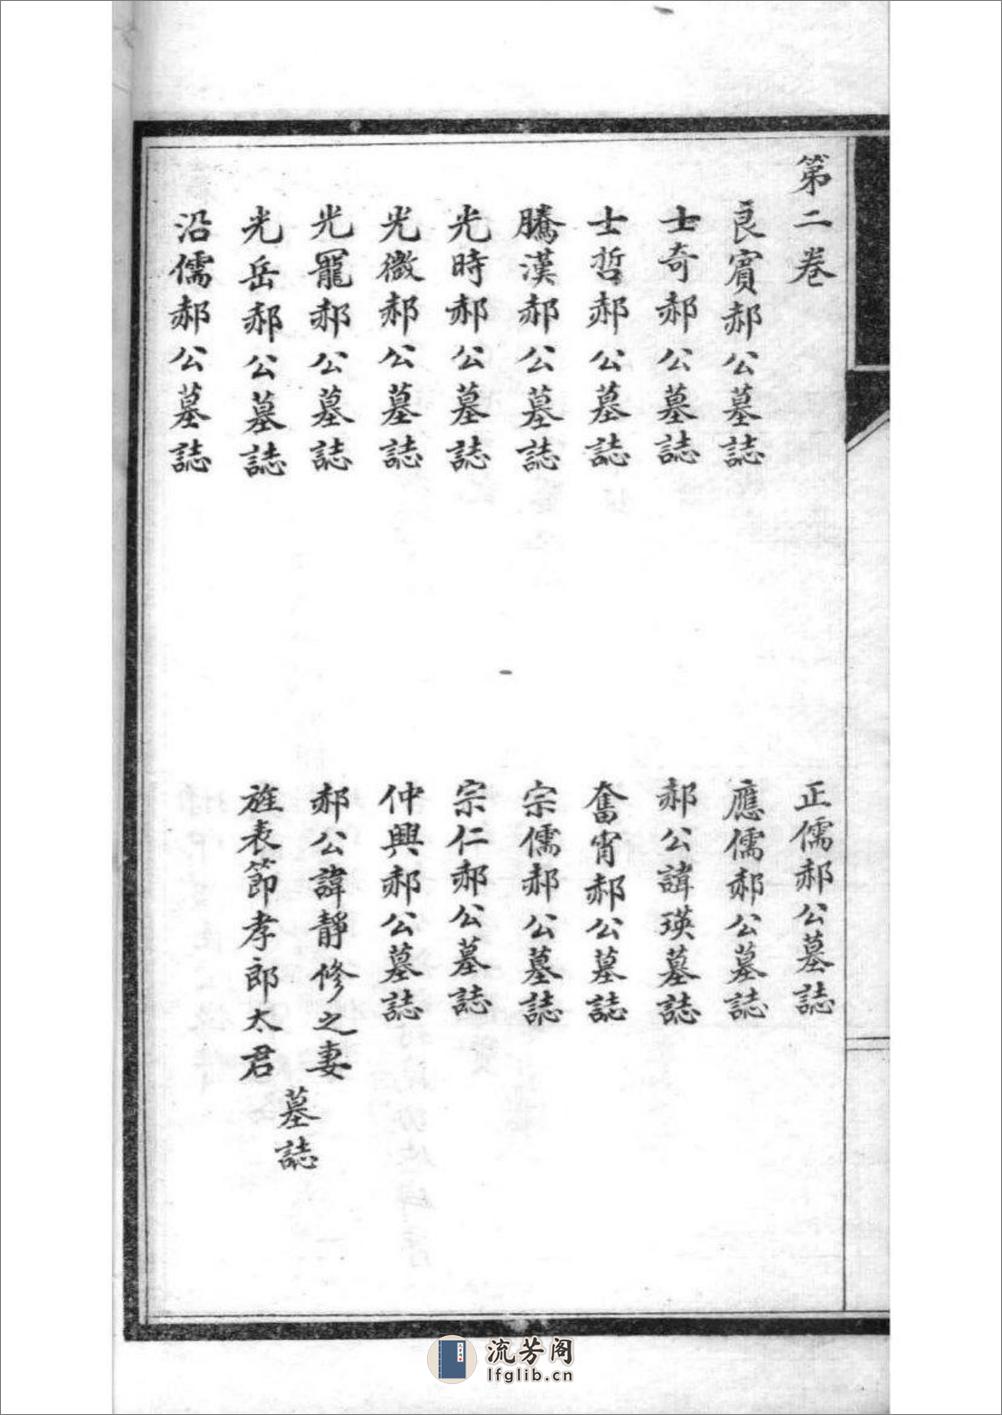 第二卷
良賓郝公墓誌
士奇郝公墓誌
士哲郝公墓誌
騰漢郝公墓誌
光時郝公墓誌
光徵郝公墓誌
光羆郝公墓誌
光岳郝公墓誌
沿儒郝公墓誌
正儒郝公墓誌
應儒郝公墓誌
郝公諱瑛墓誌
奮霄郝公墓誌
宗儒郝公墓誌
宗仁郝公墓誌
仲興郝公墓誌
郝公諱靜修之妻
旌表節孝郎太君
墓誌
流芳阁
lfglib.cn